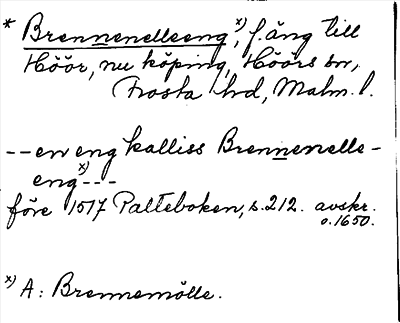 * Brennenelleeng x), f. äng till
Höör, nu köping, Höörs sn,
Frosta hd, Malm. l.
-- en eng kalliss Brennenelle-
eng x) ---
före 1517 Palteboken, s. 212. avskr.
o. 1650.
x) A: Brennemölle.